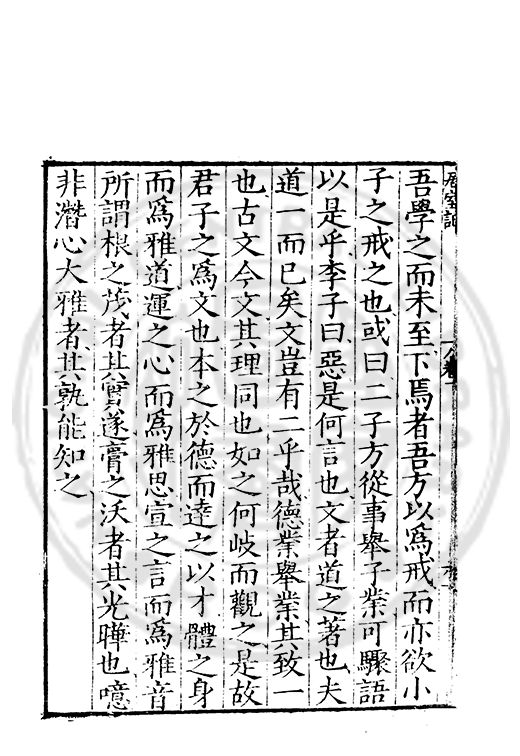 吾學之而未至下焉者吾方以爲戒而亦欲小
子之戒之也或曰二子方從事舉子業可驟語
以是乎李子曰惡是何言也文者道之著也夫
道一而已矣文豈有二乎哉德業舉業其致一
也古文今文其理同也如之何岐而觀之是故
君子之爲文也本之於德而達之以才體之身
而爲雅道運之心而爲雅思宣之言而爲雅音
所謂根之茂者其實遂膏之沃者其光曄也噫
非潛心大雅者其孰能知之